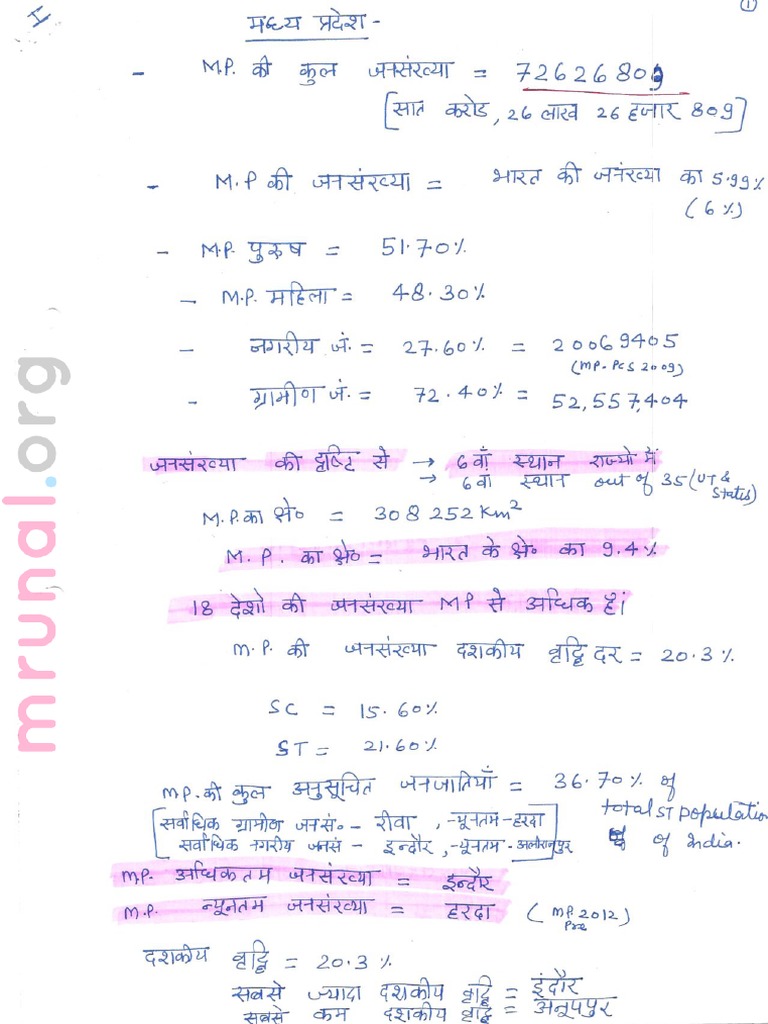 I
①
मध्य प्रदेश -
- M.P. की कुल जनसंख्या = 72626809
[सात करोड, 26 लाख 26 हजार 809]
- M.P की जनसंख्या = भारत की जनंख्या का 5.99%
(6%)
- M.P. पुरुष = 51.70%
- M.P. महिला = 48.30%
- नगरीय जं. = 27.60% = 20069405
(MP-PCS 2009)
- ग्रामीण जं. = 72.40% = 52,557,404
जनसंख्या की दृष्टि से → 6वाँ स्थान राज्यो में
→ 6वां स्थान out of 35 (UT & States)
M.P.का क्षे० = 308252 Km²
M.P. का क्षे० = भारत के क्षे० का 9.4%
18 देशो की जनसंख्या MP से अधिक है।
M.P. की जनसंख्या दशकीय वृद्धि दर = 20.3%
SC = 15.60%
ST = 21.60%
M.P.की कुल अनुसूचित जनजातियाँ = 36.70% of
total ST population
of India.
[सर्वाधिक ग्रामीण जनसं०- रीवा, न्यूनतम-हरदा]
सर्वाधिक नगरीय जनसं - इन्दौर, न्यूनतम-
M.P. अधिकतम जनसंख्या = इन्दौर
M.P. न्यूनतम जनसंख्या = हरदा (MP 2012 Pre)
दशकीय वृद्धि = 20.3%
सबसे ज्यादा दशकीय वृद्धि = इंदौर
सबसे कम दशकीय वृद्धि = अनूपपुर
mrunal.org